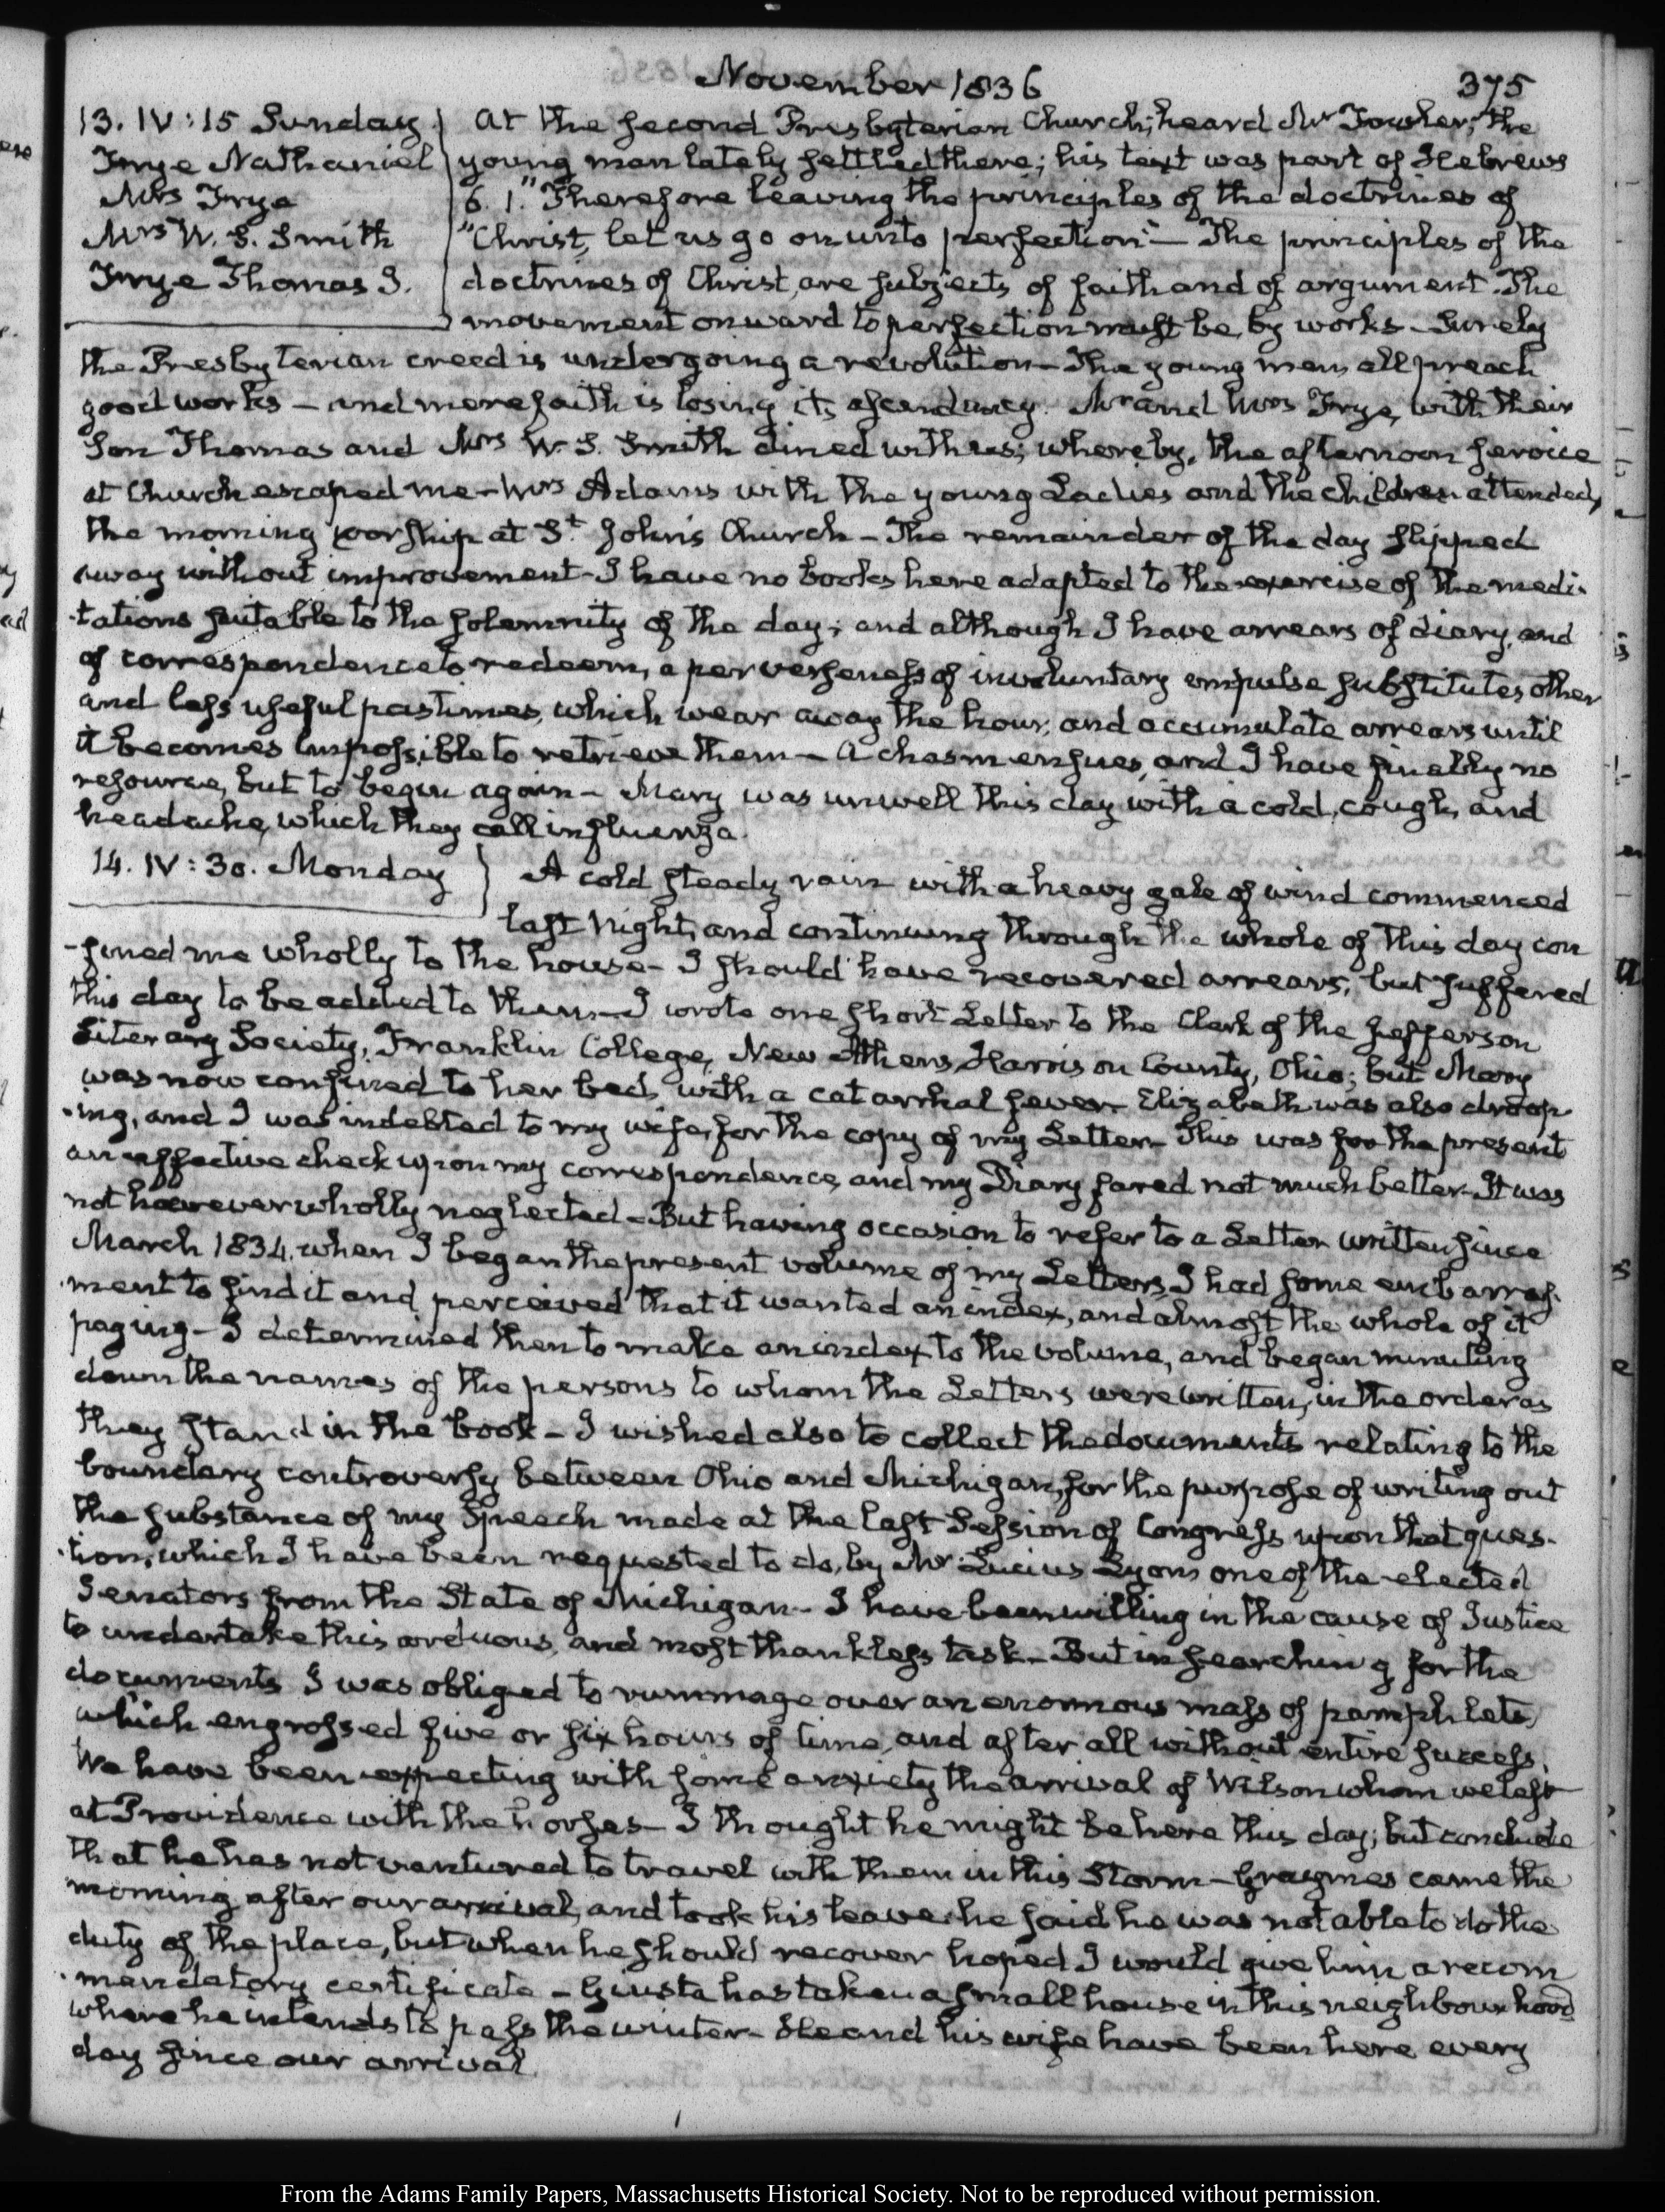 November 1836 375
13. IV:15 Sunday. At the second Presbyterian Church, heard Mr Fowler, the
Frye Nathaniel young man lately settled there; his text was part of Hebrews
Mrs Frye 6. 1. "Therefore leaving the principles of the doctrines of
Mrs W. S. Smith "Christ, let us go on unto perfection"— The principles of the
Frye Thomas J. doctrines of Christ, are subjects of faith and of argument. The
movement onward to perfection must be, by works — Surely
the Presbyterian creed is undergoing a revolution — The young men all preach
good works — and mere faith is losing its ascendancy. Mr and Mrs Frye, with their
Son Thomas and Mrs W. S. Smith dined with us; whereby, the afternoon service
at Church escaped me — Mrs Adams with the young Ladies and the children attended,
the morning worship at St. John's Church — The remainder of the day slipped
away without improvement — I have no books here adapted to the exercise of the medi-
-tations suitable to the solemnity of the day; and although I have arrears of diary, and
of correspondence to redeem, a perverseness of involuntary impulse substitutes other
and less useful pastimes, which wear away the hour, and accumulate arrears until
it becomes impossible to retrieve them — A chasm ensues, and I have finally no
resource, but to begin again — Mary was unwell this day with a cold, cough, and
headache, which they call influenza.
14. IV:30. Monday A cold steady rain with a heavy gale of wind commenced
last Night, and continuing through the whole of this day con
-fined me wholly to the house — I should have recovered arrears; but suffered
this day to be added to them — I wrote one short Letter to the Clerk of the Jefferson
Literary Society, Franklin College, New Athens, Harrison County, Ohio; but Mary
was now confined to her bed, with a catarrhal fever. Elizabeth was also droop-
-ing, and I was indebted to my wife, for the copy of my Letter — This was for the present
an effective check upon my correspondence, and my Diary fared not much better — It was
not however wholly neglected — But having occasion to refer to a Letter written since
March 1834. when I began the present volume of my Letters, I had some embarrass-
-ment to find it and perceived that it wanted an index, and almost the whole of it
paging — I determined then to make an index to the volume, and began minuting
down the names of the persons to whom the Letters were written, in the order as
they stand in the book — I wished also to collect the documents relating to the
boundary controversy between Ohio and Michigan, for the purpose of writing out
the substance of my Speech made at the last Session of Congress upon that ques-
-tion, which I have been requested to do, by Mr Lucius Lyon, one of the elected
Senators from the State of Michigan — I have been willing in the cause of Justice
to undertake this arduous, and most thankless task — But in searching for the
documents I was obliged to rummage over an enormous mass of pamphlets,
which engrossed five or six hours of time, and after all without entire success.
We have been expecting with some anxiety the arrival of Wilson whom we left
at Providence with the horses — I thought he might be here this day; but conclude
that he has not ventured to travel with them in this Storm — Graymes came the
morning after our arrival, and took his leave. he said he was not able to do the
duty of the place, but when he should recover hoped I would give him a recom
-mendatory certificate — Giusta has taken a small house in this neighbourhood
where he intends to pass the winter — He and his wife have been here every
day since our arrival
From the Adams Family Papers, Massachusetts Historical Society. Not to be reproduced without permission.